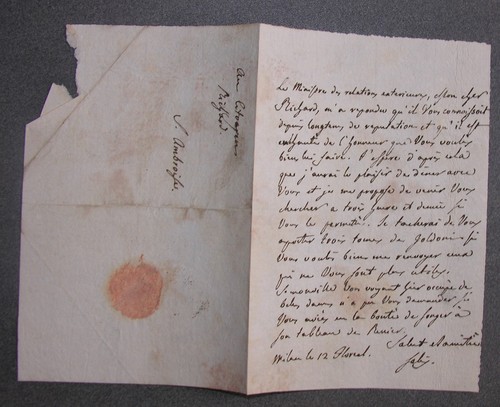 Au Citoyen
Richard
S. Ambroise.
Le Ministre des relations exterieures, Mon cher
Richard, m'a repondu qu'il Vous connoissoit
depuis longtems de reputation et qu'il est
enchanté de l'honneur que Vous voulez
bien lui faire. J'espere d'après cela
que j'aurai le plaisir de diner avec
Vous et je me propose de venir Vous
chercher a trois heure et demie si
Vous le permettés. Je tacherai de Vous
apporter trois tomes de Goldoni si
Vous voulés bien me renvoyer ceux
qui ne Vous sont plus utiles.
Vous voyant hier occupé de
belles dames n'a pu Vous demander si
Vous aviés eu la bonté de songer à
son tableau de
Salut et amitié
Milan le 12 Floreal.